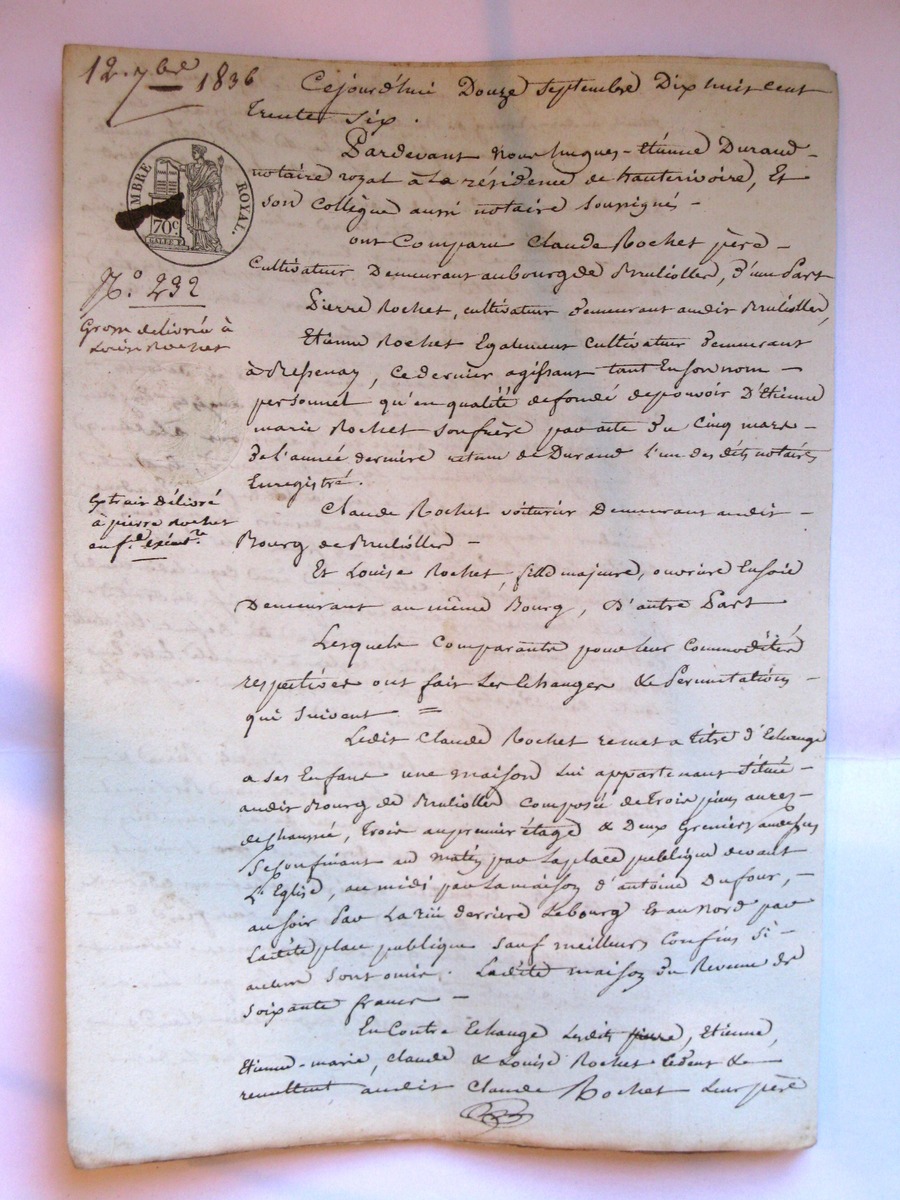 12 7bre 1836
Cejourd'hui Douze Septembre Dix huit cent
trente Six.
Pardevant nous hugues-Etienne Durand
notaire royal à la résidence de hauterivoire, Et
son Collègue aussi notaire soussignés -
TIMBRE ROYAL.
70c
ont Comparu Claude Rochet père -
Cultivateur Demeurant au bourg de Brullioles, d'une Part
No. 232
Pierre Rochet, cultivateur demeurant audit Brullioles,
Grosse délivrée à
Louise Rochet
Etienne Rochet Egalement Cultivateur demeurant
à Bessenay, Ce dernier agissant tant En son nom -
personnel qu'en qualité de fondé de pouvoir D'Etienne
marie Rochet son frère par acte du Cinq mars -
de l'année dernière retenu de Durand l'un des dits notaires
Enregistré.
Extrait Délivré
à pierre Rochet
en fe. exécutre
Claude Rochet voiturier Demeurant audit -
Bourg de Brullioles -
Et Louise Rochet, fille majeure, ouvrière En soie
Demeurant au même Bourg, D'autre Part
Lesquels Comparants pour leur Commodités
respectives ont fait Les Echanges & Permutations -
qui suivent =
Ledit Claude Rochet remet a titre d'Echange
a ses Enfants une maison lui appartenant située -
audit Bourg de Brullioles Composée de trois pièces au rez -
de chaussée, trois au premier étage & Deux Greniers audessus
Se Confinant au matin par la place publique devant
L'Eglise, au midi par la maison d'antoine Dufour, -
au soir Par La rue derrière Le bourg Et au Nord par
La dite place publique Sauf meilleurs Confins Si -
aucuns sont omis. Ladite maison du Revenu de
soixante francs -
En Contre Echange Lesdits pierre, Etienne,
Etienne-marie, Claude & Louise Rochet Cèdent &
remettent audit Claude Rochet leur père